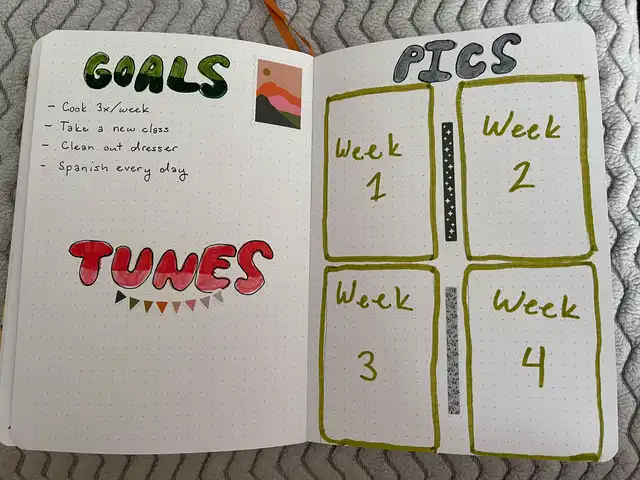 GOALS
- Cook 3x/week
- Take a new class
- Clean out dresser
- Spanish every day
TUNES
PICS
Week
1
Week
2
Week
3
Week
4